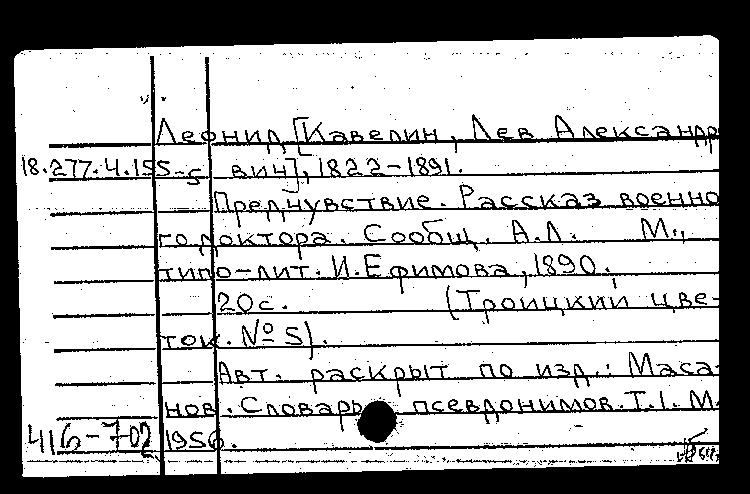 Леонид [Кавелин, Лев Александр
18.277.4.155-5 вич], 1822-1891.
Предчувствие. Рассказ военно
го доктора. Сообщ. А.Л. М.,
типо-лит. И.Ефимова, 1890.
20с. (Троицкий цве-
ток. № 5).
Авт. раскрыт по изд.: Маса-
нов. Словарь псевдонимов. Т.I. М.
416-702 1956.